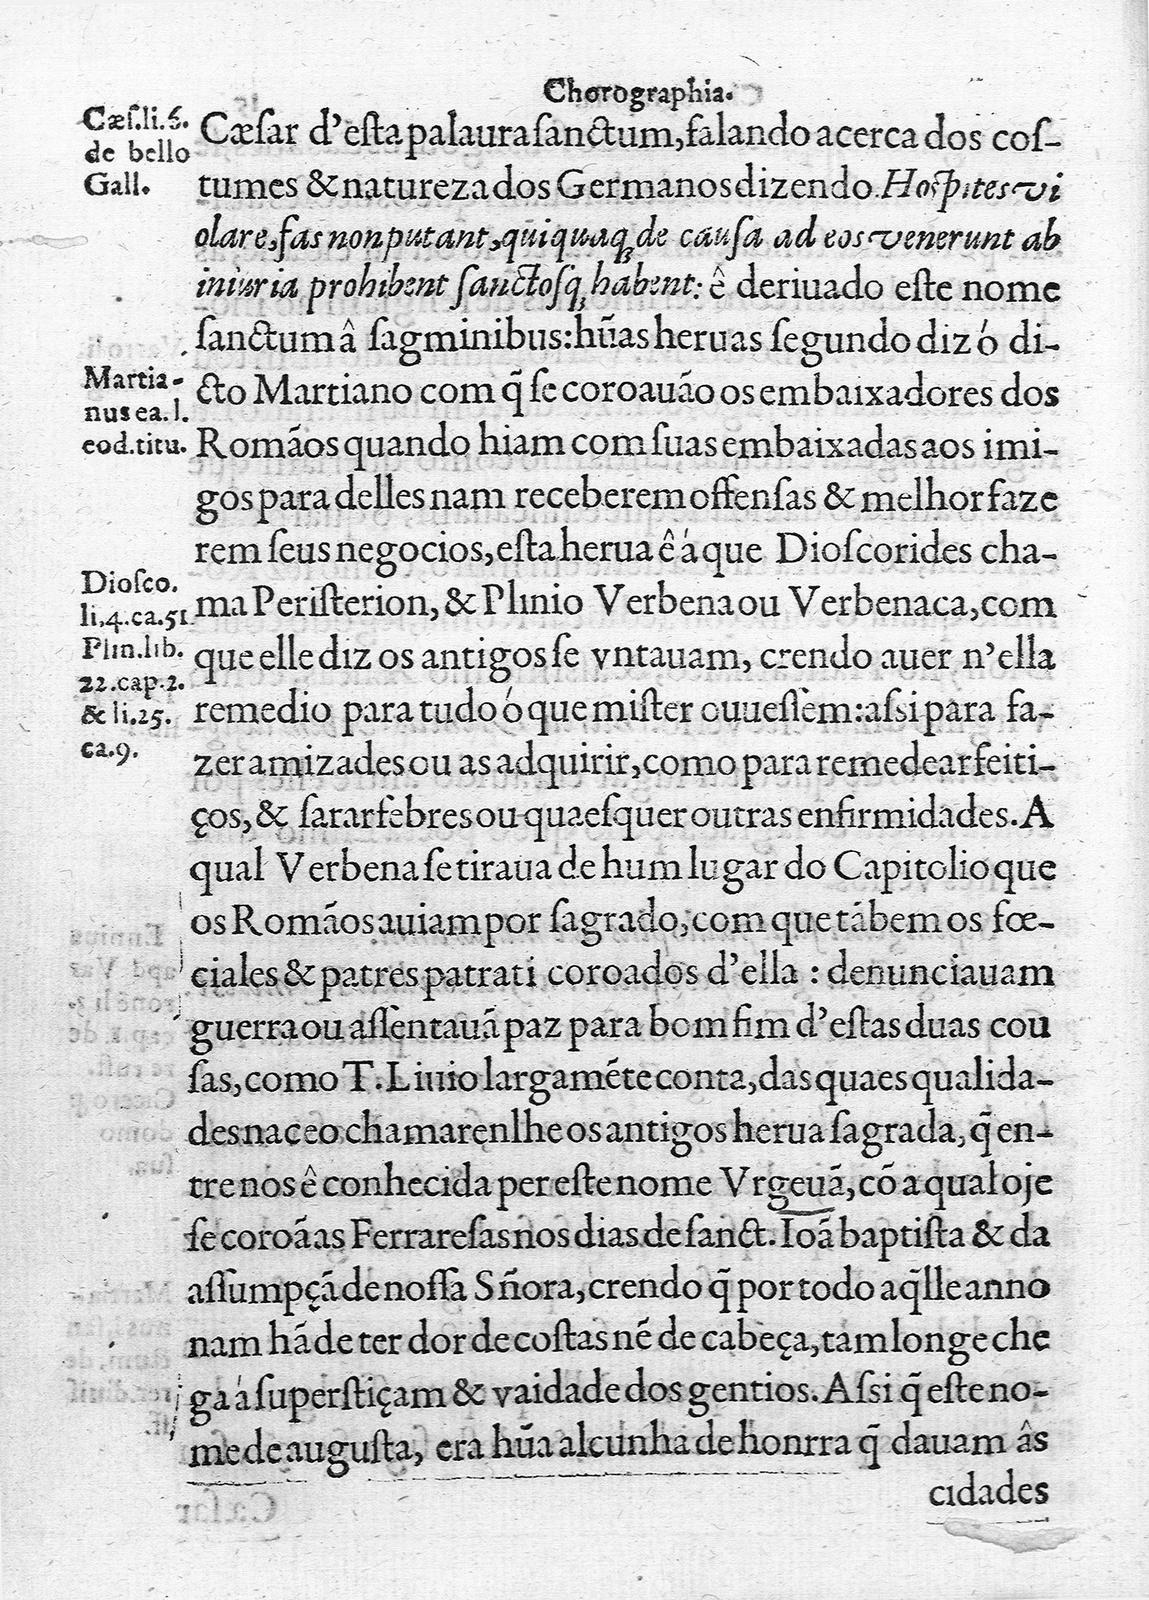 Chorographia.
Cæſ.li.6.
de bello
Gall.
Cæſar d'eſta palaura ſanctum, falando acerca dos coſ-
tumes & natureza dos Germanos dizendo. Hoſpites vi
olare, fas non putant, qui quaq; de cauſa ad eos venerunt ab
iniuria prohibent ſanctoſq; habent: ê deriuado eſte nome
ſanctum â ſagminibus: hũas heruas ſegundo diz ó di-
Martia-
nus ea. l.
eod. titu.
cto Martiano com q̃ ſe coroauão os embaixadores dos
Romãos quando hiam com ſuas embaixadas aos imi-
gos para delles nam receberem offenſas & melhor faze
rem ſeus negocios, eſta herua ê á que Dioſcorides cha-
Dioſco.
li.4.ca.51
Plin.lib.
22.cap.2.
& li.25.
ca.9.
ma Periſterion, & Plinio Verbena ou Verbenaca, com
que elle diz os antigos ſe vntauam, crendo auer n'ella
remedio para tudo ó que miſter ouueſſem: aſsi para fa-
zer amizades ou as adquirir, como para remedear feiti-
ços, & ſarar febres ou quaeſquer outras enfirmidades. A
qual Verbena ſe tiraua de hum lugar do Capitolio que
os Romãos auiam por ſagrado, com que tãbem os fœ-
ciales & patres patrati coroados d'ella : denunciauam
guerra ou aſſentauã paz para bom fim d'eſtas duas cou
ſas, como T. Liuio largamẽte conta, das quaes qualida-
des naceo chamarenlhe os antigos herua ſagrada, q̃ en-
tre nos ê conhecida per eſte nome Vrgeuã, cõ a qual oje
ſe coroã as Ferrareſas nos dias de ſanct. Ioã baptiſta & da
aſſumpçã de noſſa Sñora, crendo q̃ por todo aq̃lle anno
nam hã de ter dor de coſtas nẽ de cabeça, tam longe che
ga á ſuperſtiçam & vaidade dos gentios. Aſsi q̃ eſte no-
me de auguſta, era hũa alcunha de honrra q̃ dauam âs
cidades